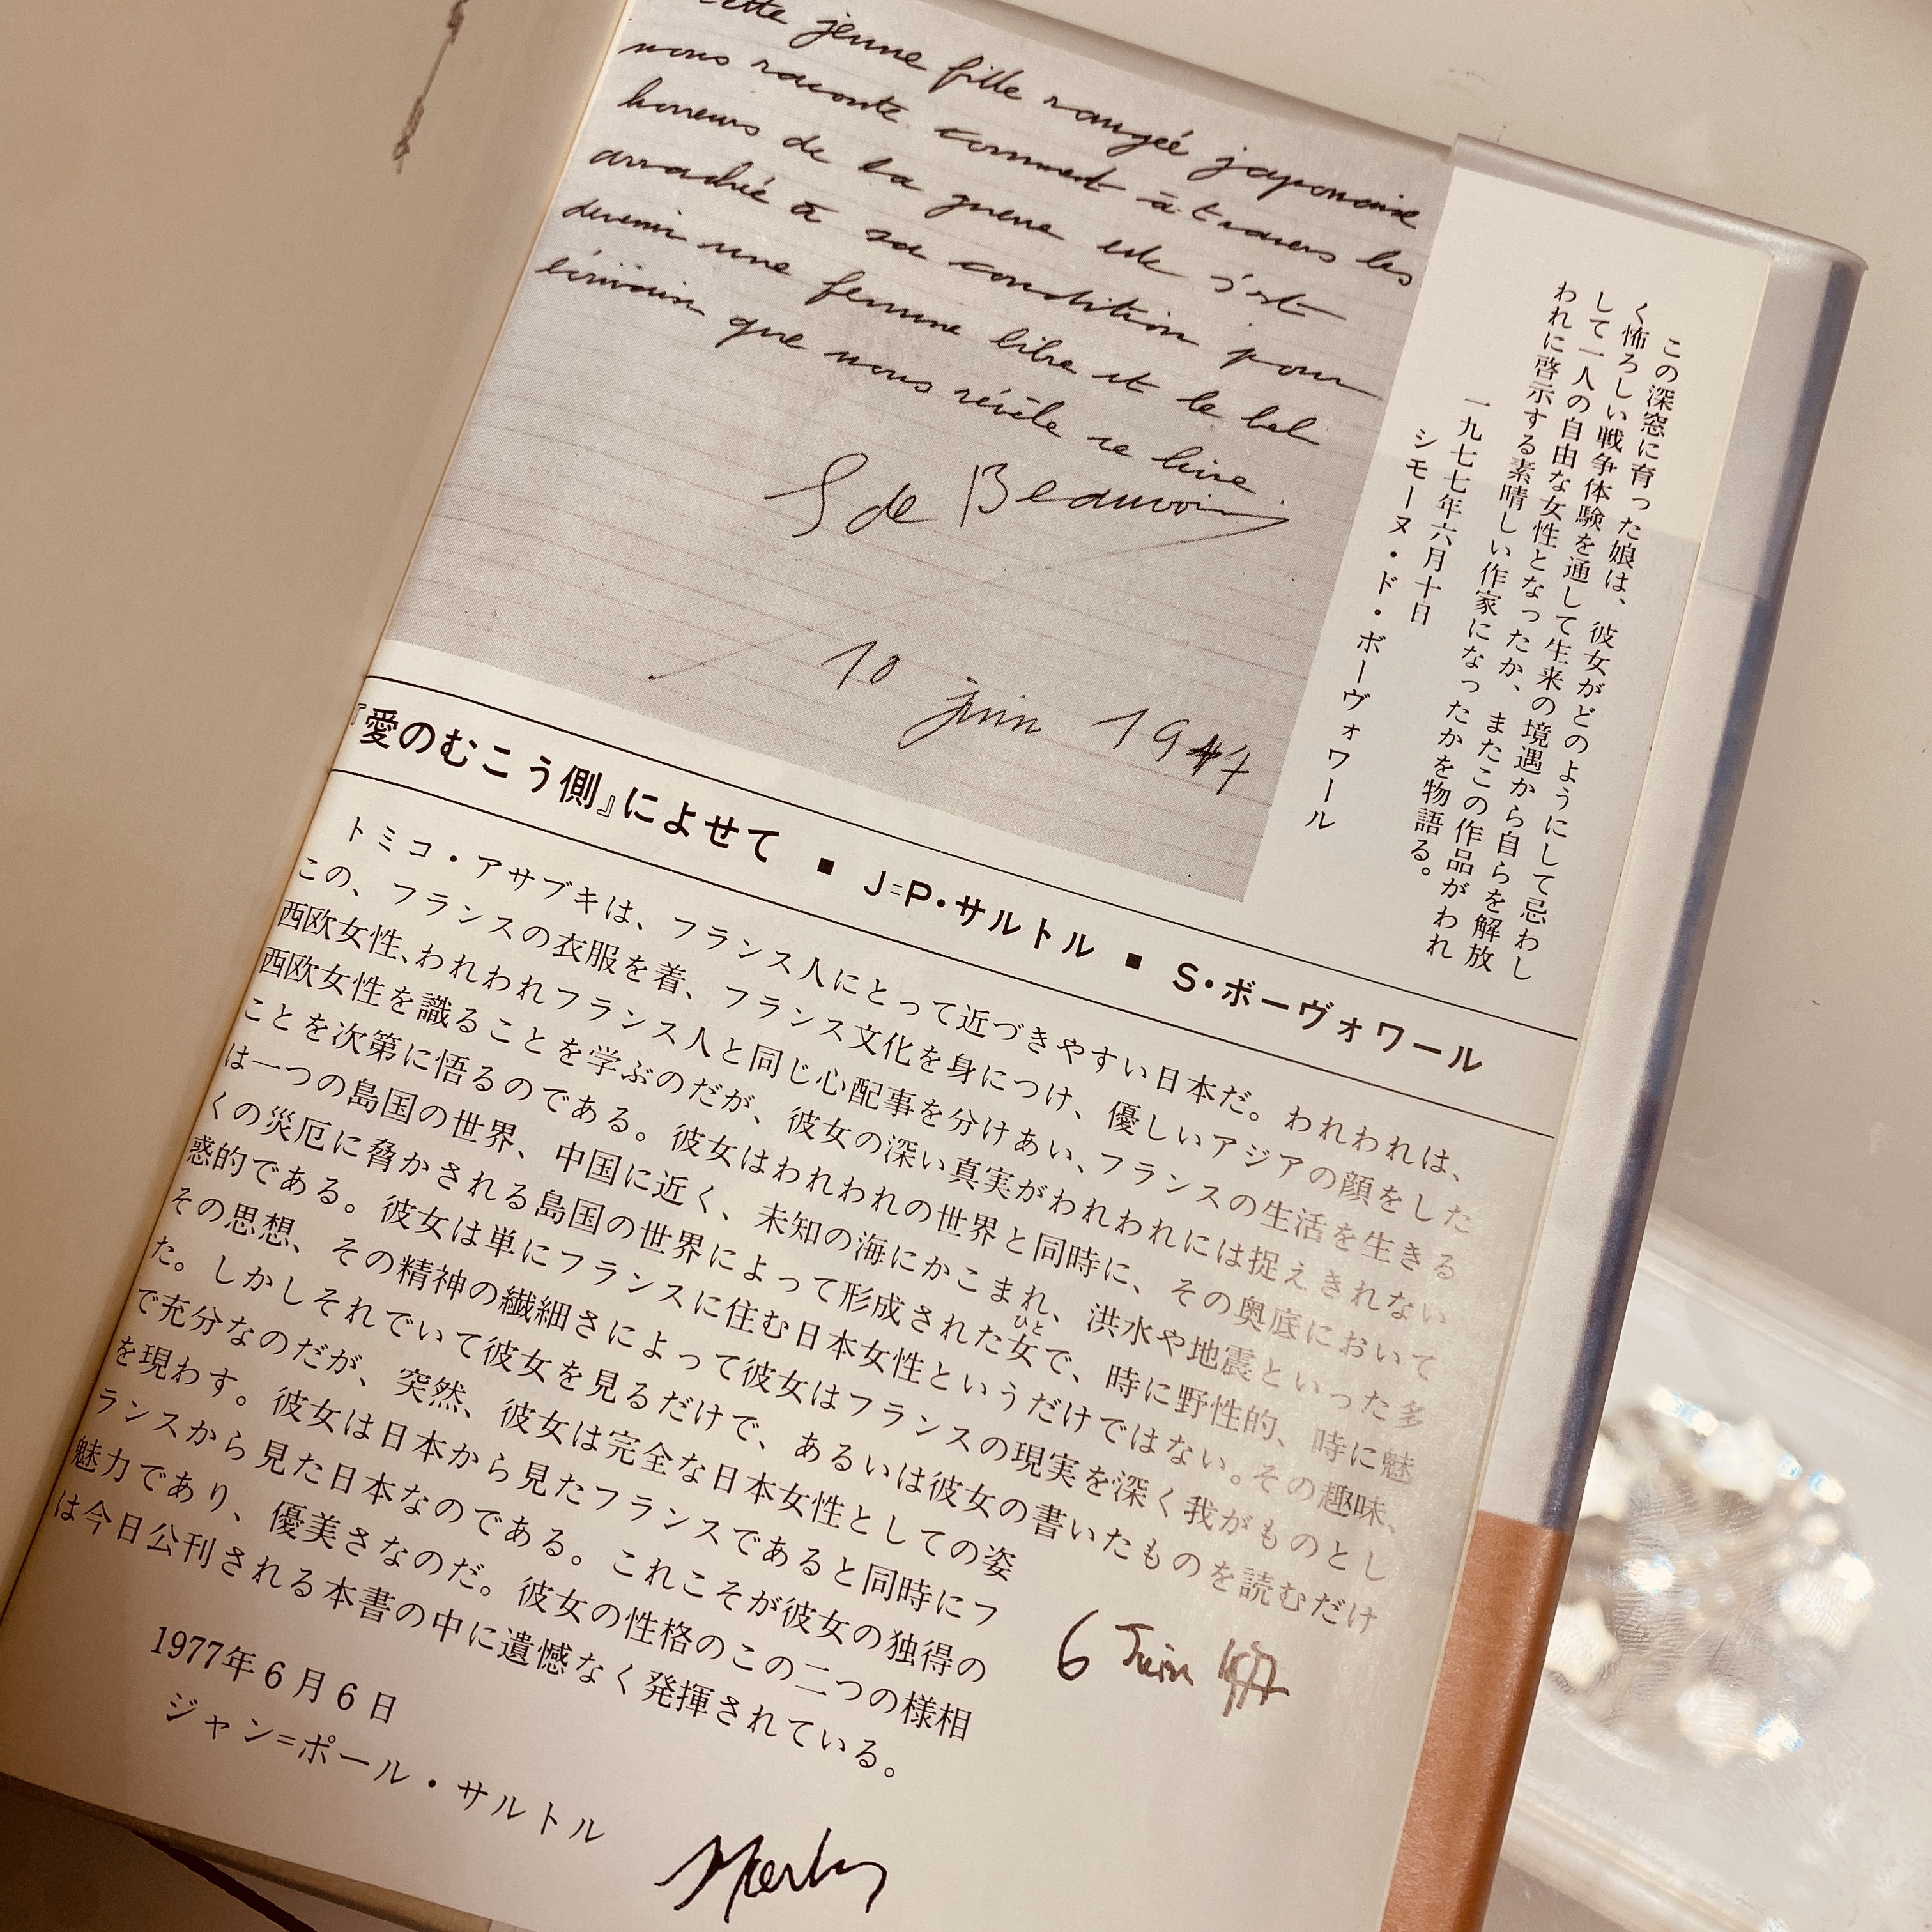 jeune fille rangée japonaise
nous raconte comment à travers les
horreurs de la guerre elle s'est
arrachée à sa condition pour
devenir une femme libre et le bel
écrivain que nous révèle ce livre.
S de Beauvoir
10 juin 1977
この深窓に育った娘は、彼女がどのようにして忌わし
く怖ろしい戦争体験を通して生来の境遇から自らを解放
して一人の自由な女性となったか、またこの作品がわれ
われに啓示する素晴しい作家になったかを物語る。
一九七七年六月十日
シモーヌ・ド・ボーヴォワール
『愛のむこう側』によせて ■ J=P・サルトル ■ S・ボーヴォワール
トミコ・アサブキは、フランス人にとって近づきやすい日本だ。われわれは、
この、フランスの衣服を着、フランス文化を身につけ、優しいアジアの顔をした
西欧女性、われわれフランス人と同じ心配事を分けあい、フランスの生活を生きる
西欧女性を識ることを学ぶのだが、彼女の深い真実がわれわれには捉えきれない
ことを次第に悟るのである。彼女はわれわれの世界と同時に、その奥底において
は一つの島国の世界、中国に近く、未知の海にかこまれ、洪水や地震といった多
くの災厄に脅かされる島国の世界によって形成された女で、時に野性的、時に魅
惑的である。彼女は単にフランスに住む日本女性というだけではない。その趣味、
その思想、その精神の繊細さによって彼女はフランスの現実を深く我がものとし
た。しかしそれでいて彼女を見るだけで、あるいは彼女の書いたものを読むだけ
で充分なのだが、突然、彼女は完全な日本女性としての姿
を現わす。彼女は日本から見たフランスであると同時にフ
ランスから見た日本なのである。これこそが彼女の独得の
魅力であり、優美さなのだ。彼女の性格のこの二つの様相
は今日公刊される本書の中に遺憾なく発揮されている。
ひと
6 Juin 1977
1977年6月6日
ジャン=ポール・サルトル